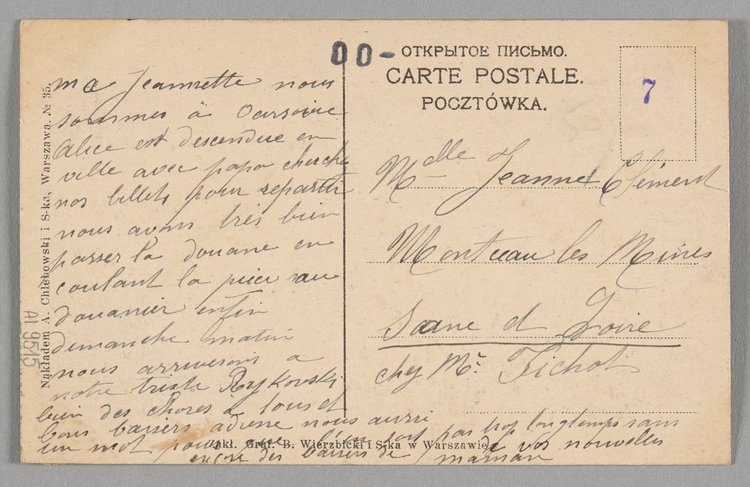 00-
ОТКРЫТОЕ ПИСЬМО.
CARTE POSTALE.
POCZTÓWKA.
7
ma Jeannette nous
sommes à Varsovie
Alice est descendue en
ville avec papa cherche
nos billets pour repartir
nous avons très bien
passer la douane en
coulant la piece au
douanier enfin
demanche matin
nous arriverons a
notre triste Rykovski
bien des choses à tous et
bons baisers adresse nous aussi
un mot pour que l'on soit pas trop longtemps sans
de vos nouvelles
encore des baisers de maman
Mdlle Jeanne Clément
Montceau les Mines
Saone et Loire
chez Mr. Trichot
Nakładem A. Chlebowski i S-ka, Warszawa. № 35.
AI 9515
Zakł. Graf. B. Wierzbicki i S-ka w Warszawie